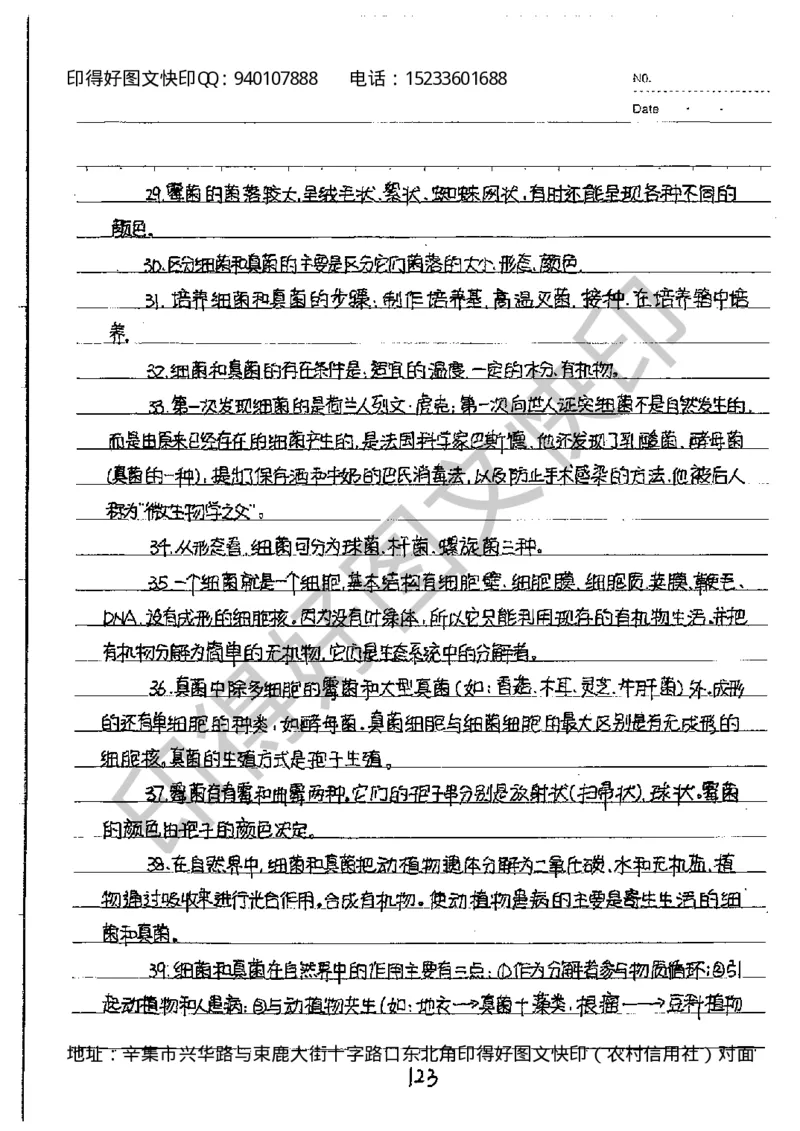 印得好图文快印QQ：940107888 电话：15233601688
NO.
Date
29.霉菌的菌落较大,呈绒毛状、絮状、蜘蛛网状,有时还能呈现各种不同的
颜色。
30.区分细菌和真菌的主要是区分它们菌落的大小、形态、颜色.
31.培养细菌和真菌的步骤:制作培养基、高温灭菌、接种、在培养箱中培
养。
32.细菌和真菌的存在条件是:适宜的温度、一定的水分、有机物。
33.第一次发现细菌的是荷兰人列文·虎克;第一次向世人证实细菌不是自然发生的,
而是由原来已经存在的细菌产生的,是法国科学家巴斯德、他还发现了乳酸菌、酵母菌
(真菌的一种),提出了保存酒和牛奶的巴氏消毒法,以及防止手术感染的方法.他被后人
称为“微生物学之父”。
34.从形态看,细菌可分为球菌、杆菌、螺旋菌三种。
35.一个细菌就是一个细胞,基本结构有细胞壁、细胞膜、细胞质、荚膜、鞭毛、
DNA,没有成形的细胞核。因为没有叶绿体,所以它只能利用现存的有机物生活.并把
有机物分解为简单的无机物,它们是生态系统中的分解者。
36.真菌中除多细胞的霉菌和大型真菌(如:香菇、木耳、灵芝、牛肝菌)外.成形
的还有单细胞的种类,如酵母菌.真菌细胞与细菌细胞的最大区别是有无成形的
细胞核。真菌的生殖方式是孢子生殖。
37.霉菌有青霉和曲霉两种.它们的孢子串分别是放射状(扫帚状)、球状。霉菌
的颜色由孢子的颜色决定。
38.在自然界中,细菌和真菌把动植物遗体分解为二氧化碳、水和无机盐,植
物通过吸收来进行光合作用.合成有机物。使动植物患病的主要是寄生生活的细
菌和真菌。
39.细菌和真菌在自然界中的作用主要有三点:①作为分解者参与物质循环;②引
起动植物和人患病;③与动植物共生(如:地衣→真菌+藻类,根瘤→豆科植物
地址：辛集市兴华路与束鹿大街十字路口东北角印得好图文快印（农村信用社）对面
123
印得好图文快印